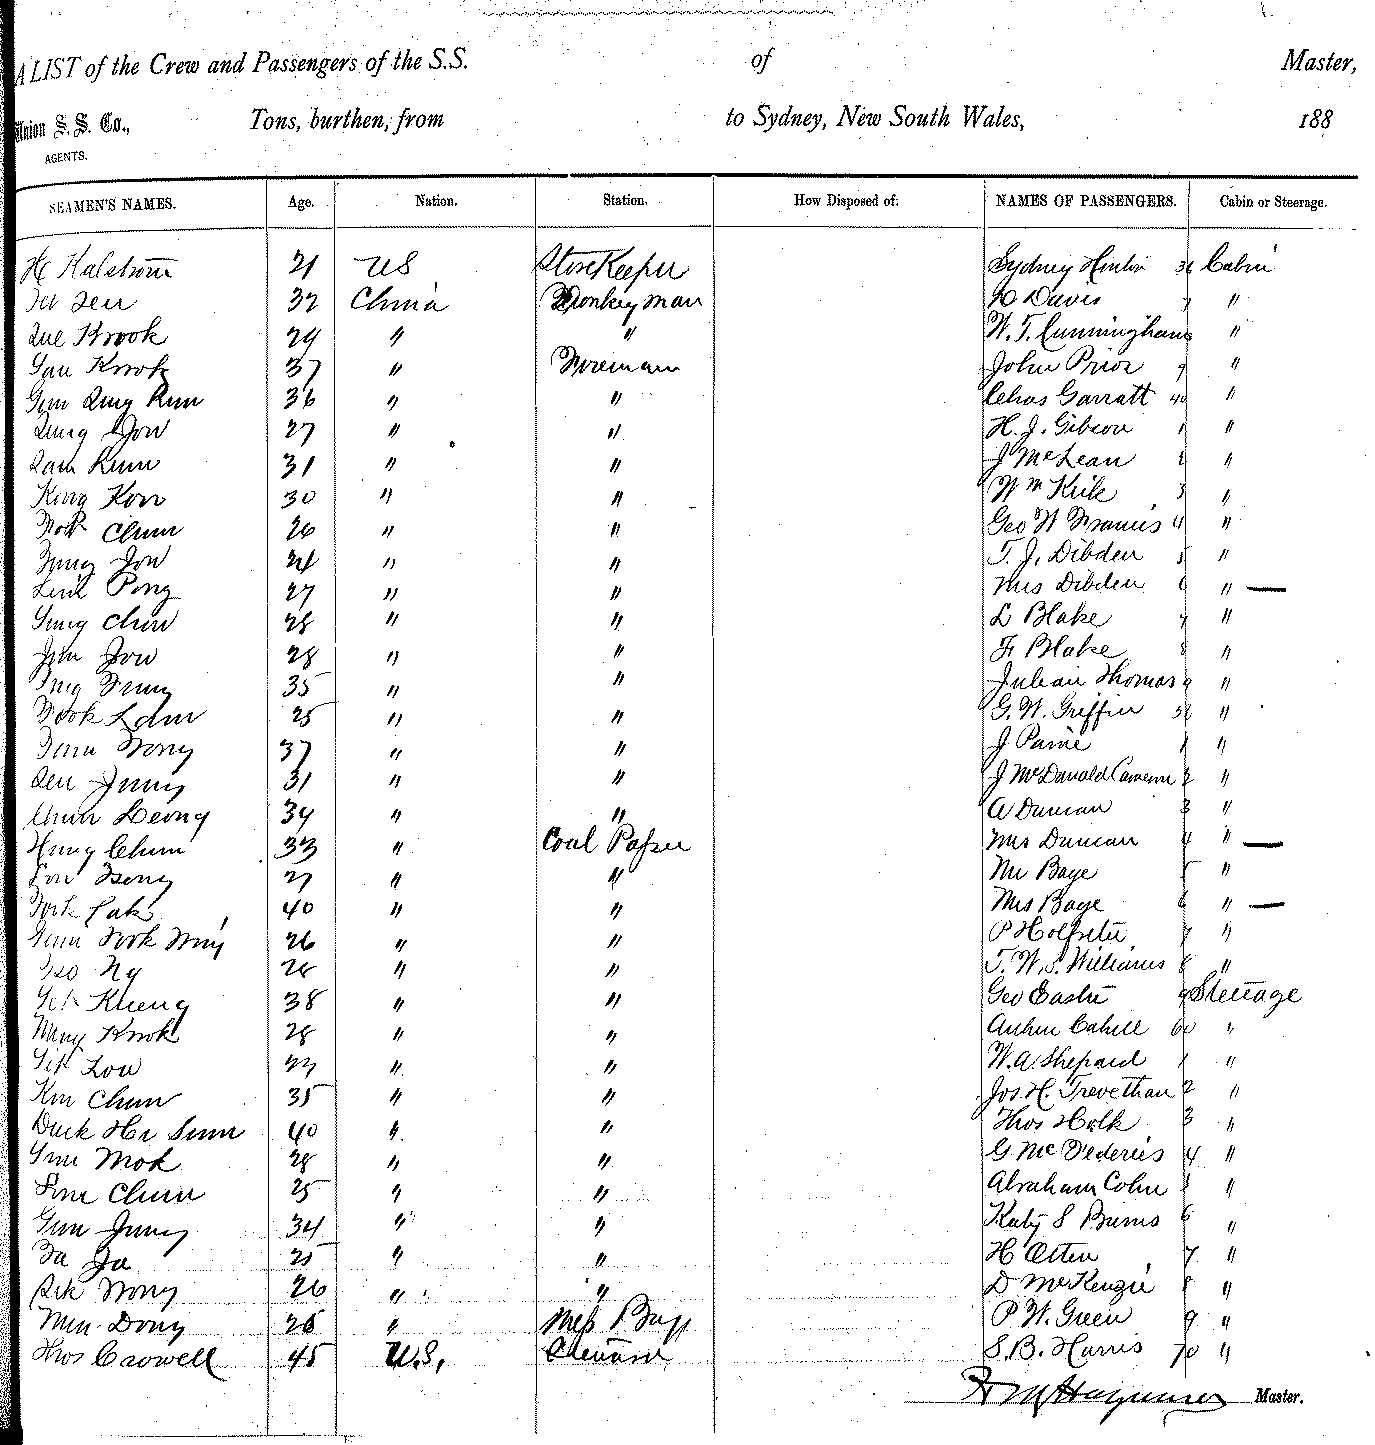 A LIST of the Crew and Passengers of the S.S. of Master,
Union S. S. Co., Tons, burthen, from to Sydney, New South Wales, 188
AGENTS.
SEAMEN'S NAMES. Age. Nation. Station. How Disposed of. NAMES OF PASSENGERS. Cabin or Steerage.
H Halstrom 21 US StoreKeeper Sydney Hinton 36 Cabin
32 China Donkeyman Davis 7 "
Que Krook 29 " " W. T. Cunningham "
37 " Fireman John Prior 9 "
Gum Qung Kun 36 " " Chas Garratt 40 "
Qung Jow 27 " " H. J. Gibson 1 "
Qam Kum 31 " " J McLean 2 "
King Kow 30 " " Wm Kirk 3 "
Chun 26 " " Geo W Francis 4 "
Fung Jow 24 " " T. J. Dibden 5 "
Pong 27 " " Mrs Dibden 6 " —
Gung Chow 28 " " L Blake 7 "
Jim Jow 28 " " F Blake 8 "
35 " " Julian Thomas 9 "
Fook Lam 25 " " G. W. Griffin 50 "
Wong 37 " " J Paine 1 "
Jung 31 " " J McDonald Cameron 2 "
Chun Leong 34 " " A Duncan 3 "
Hung Chum 33 " Coal Passer Mrs Duncan 4 " —
27 " " Mr Baye 5 "
40 " " Mrs Baye 6 " —
Fook 26 " " P 7 "
Ng 28 " " T. W. S. Williams 8 "
Kueng 38 " " Geo Easte 9 Steerage
Mang Krook 28 " " Arthur Cahill 60 "
Lou 27 " " W. A. Shepard 1 "
Kow Chun 35 " " Jos. H. Trevethan 2 "
Duck He Sum 40 " " Thos Holk 3 "
Mok 28 " " G McFederies 4 "
Chun 25 " " Abraham Cohn 5 "
Gum Jung 34 " " Katy S Burns 6 "
Fa Ja 25 " " H Otten 7 "
Wong 26 " " D McKenzie 8 "
Mun Dong 26 " Mess Boy P. W. Green 9 "
Thos Crowell 45 U.S. Steward S. B. Harris 70 "
Master.